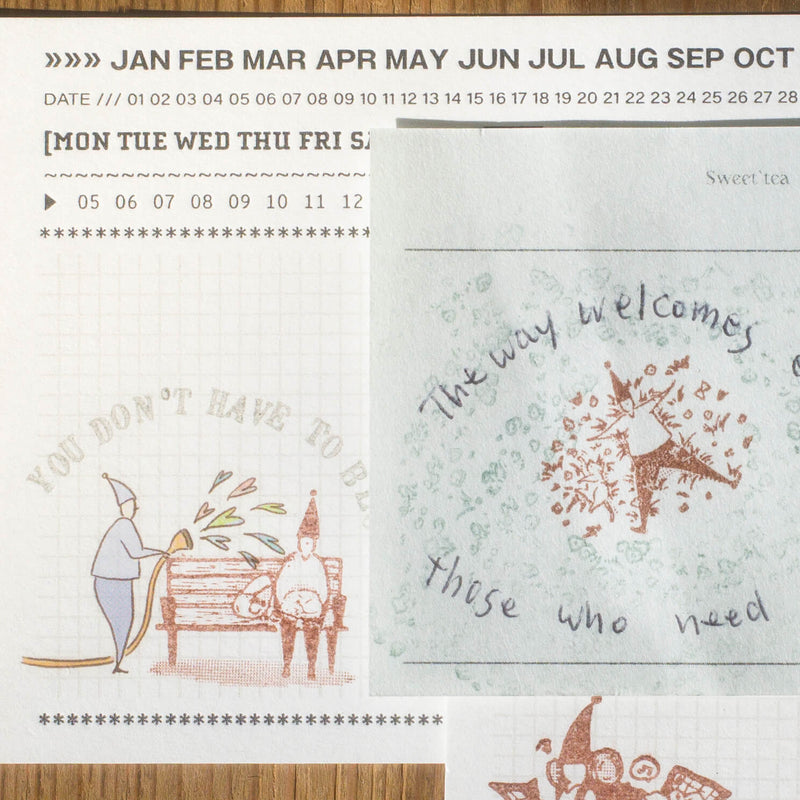 »»» JAN FEB MAR APR MAY JUN JUL AUG SEP OCT
DATE /// 01 02 03 04 05 06 07 08 09 10 11 12 13 14 15 16 17 18 19 20 21 22 23 24 25 26 27 28
[MON TUE WED THU FRI
~~~~~~~~~~~~~~~~~~~~~~~~~~~~
▶ 05 06 07 08 09 10 11 12
****************************
YOU DON'T HAVE TO
Sweet'tea
The way welcomes
those who need
***********************************